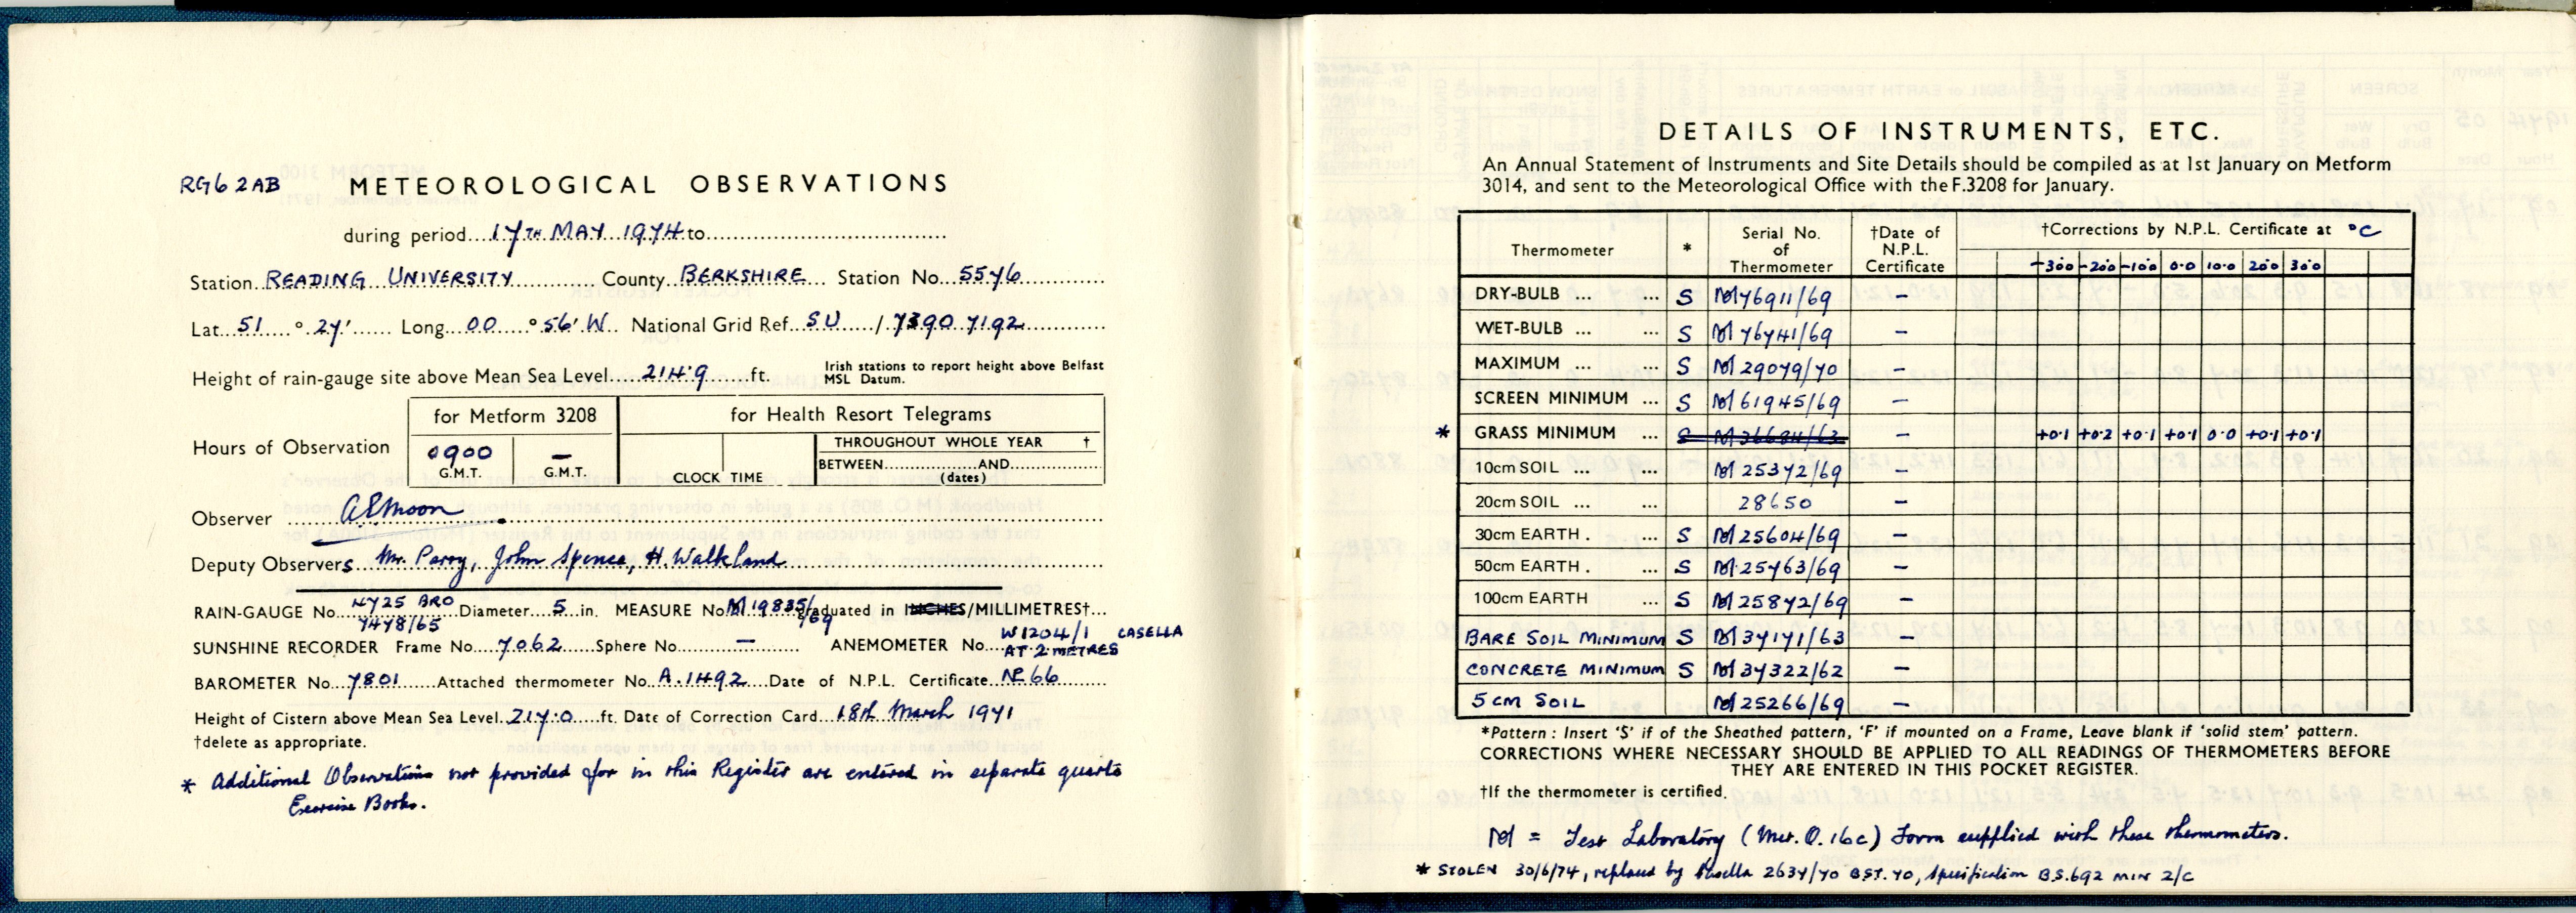 RG6 2AB METEOROLOGICAL OBSERVATIONS
during period....17TH MAY 1974.to..........
Station..READING UNIVERSITY......County BERKSHIRE... Station No..5576
Lat 51 ° 27'...... Long...00 ° 56' W.. National Grid Ref. SU ..../ 7390 7192
Height of rain-gauge site above Mean Sea Level.....214.9......ft. Irish stations to report height above Belfast
MSL Datum.
for Metform 3208 for Health Resort Telegrams
Hours of Observation 0900 — THROUGHOUT WHOLE YEAR †
BETWEEN..........AND..........
G.M.T. G.M.T. CLOCK TIME (dates)
Observer A E Moon
Deputy Observers Mr. Parry, John Spence, H. Walkland
RAIN-GAUGE No. NY25 BRO Diameter...5..in. MEASURE No. M 19835/69 graduated in INCHES/MILLIMETRES†...
7478/65
SUNSHINE RECORDER Frame No....7062......Sphere No.....—.... ANEMOMETER No...W1204/1 CASELLA
AT 2 METRES
BAROMETER No..7801......Attached thermometer No..A.1492...Date of N.P.L. Certificate..NP 66
Height of Cistern above Mean Sea Level..217.0....ft. Date of Correction Card...18th March 1971
†delete as appropriate.
* Additional Observations not provided for in this Register are entered in separate quarto
Exercise Books.
DETAILS OF INSTRUMENTS, ETC.
An Annual Statement of Instruments and Site Details should be compiled as at 1st January on Metform
3014, and sent to the Meteorological Office with the F.3208 for January.
Thermometer * Serial No. of Thermometer †Date of N.P.L. Certificate †Corrections by N.P.L. Certificate at °C
-30.0 -20.0 -10.0 0.0 10.0 20.0 30.0
DRY-BULB ... ... S M 76911/69 —
WET-BULB ... ... S M 76741/69 —
MAXIMUM ... ... S M 29079/70 —
SCREEN MINIMUM ... S M 61945/69 —
* GRASS MINIMUM ... S M 36684/63 — +0.1 +0.2 +0.1 +0.1 0.0 +0.1 +0.1
10cm SOIL ... ... M 25372/69 —
20cm SOIL ... ... 28650 —
30cm EARTH . ... S M 25604/69 —
50cm EARTH . ... S M 25763/69 —
100cm EARTH ... S M 25872/69 —
BARE SOIL MINIMUM S M 37171/63 —
CONCRETE MINIMUM S M 37322/62 —
5 CM SOIL M 25266/69 —
*Pattern : Insert 'S' if of the Sheathed pattern, 'F' if mounted on a Frame, Leave blank if 'solid stem' pattern.
CORRECTIONS WHERE NECESSARY SHOULD BE APPLIED TO ALL READINGS OF THERMOMETERS BEFORE
THEY ARE ENTERED IN THIS POCKET REGISTER.
†If the thermometer is certified.
M = Test Laboratory (Met. O. 16c) Form supplied with these thermometers.
* STOLEN 30/6/74, replaced by Casella 2637/70 BST. 70, specification B.S.692 MIN 2/C